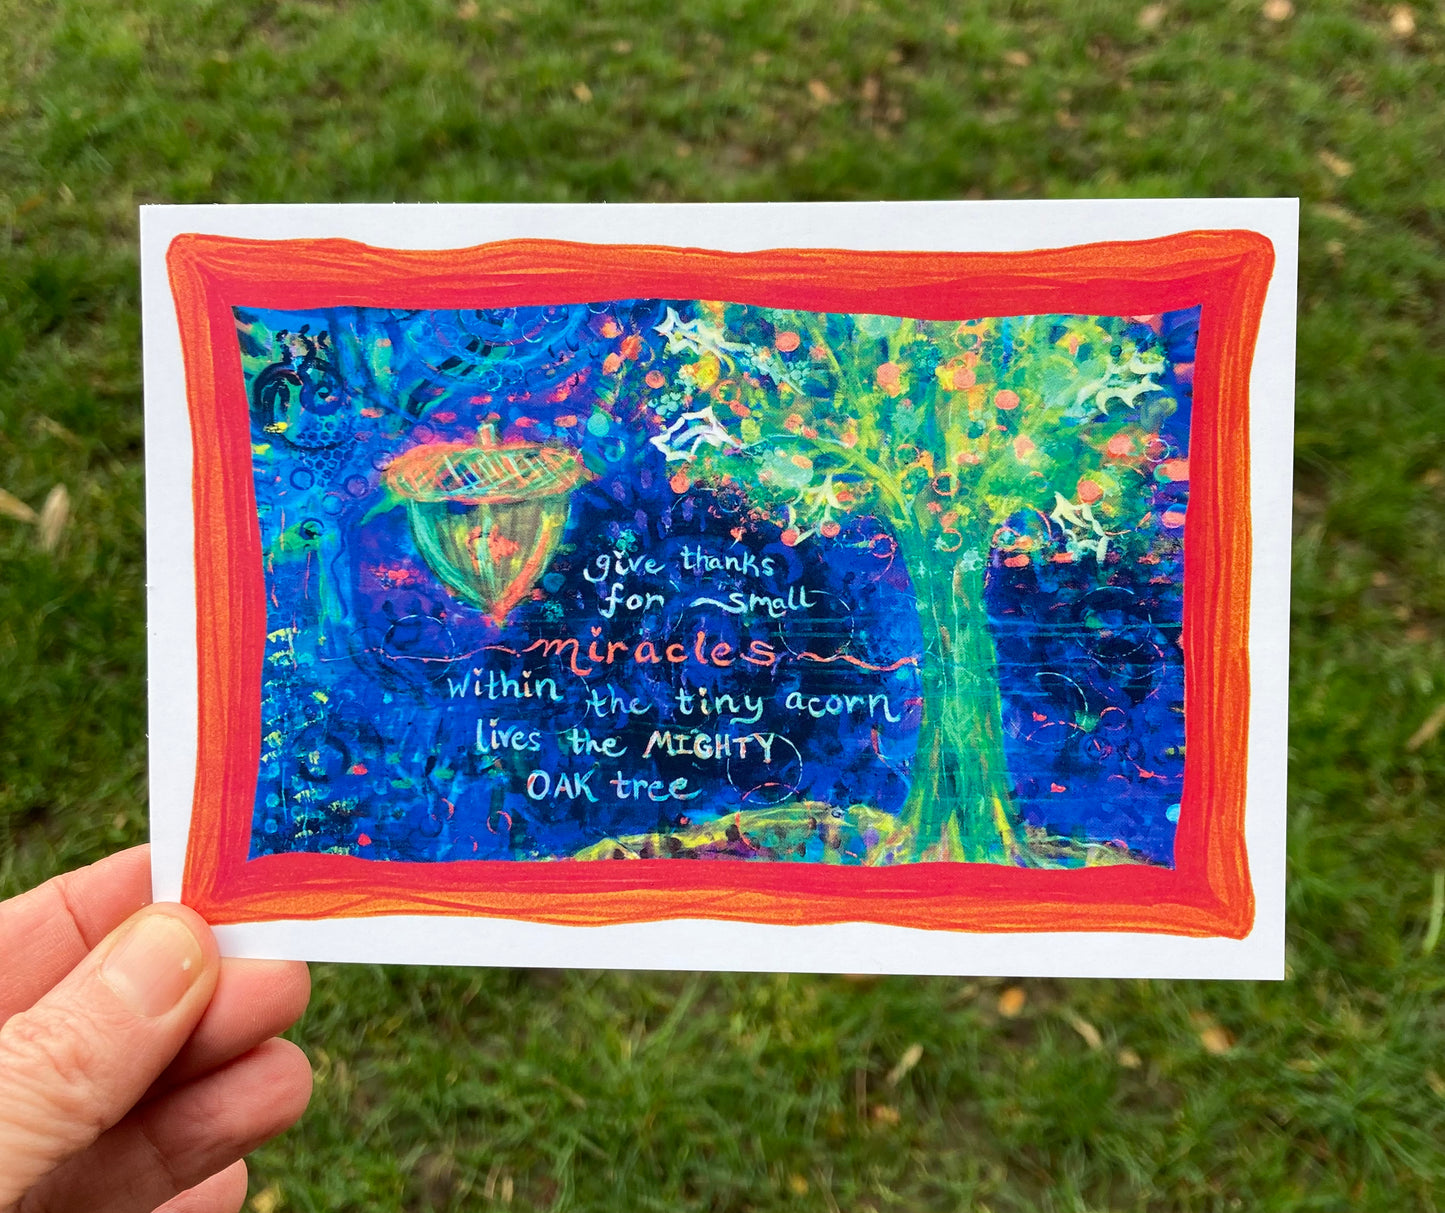 give thanks
for small
miracles
within the tiny acorn
lives the MIGHTY
OAK tree